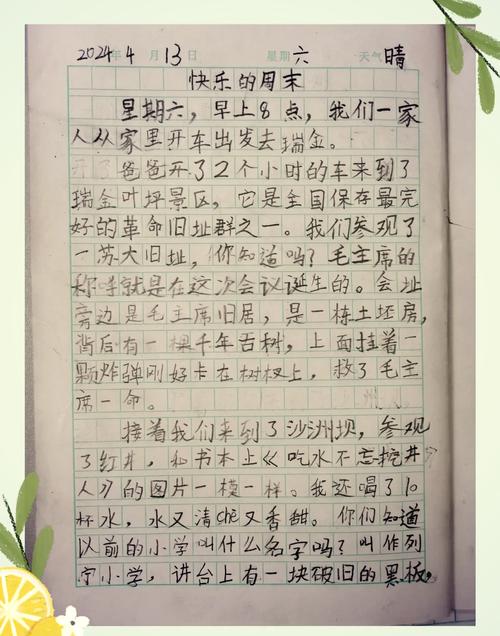 2024年4月13日 星期六 天气晴
快乐的周末
星期六，早上8点，我们一家
人从家里开车出发去瑞金。
开了爸爸开了2个小时的车来到了
瑞金叶坪景区，它是全国保存最完
好的革命旧址群之一。我们参观了
一苏大旧址，你知道吗？毛主席的
称呼就是在这次会议诞生的。会址
旁边是毛主席旧居，是一栋土坯房，
背后有一棵千年古树，上面挂着一
颗炸弹刚好卡在树杈上，救了毛主
席一命。
接着我们来到了沙洲坝，参观
了红井，和书本上《吃水不忘挖井
人》的图片一模一样。我还喝了10
杯水，水又清chè又香甜。你们知道
以前的小学叫什么名字吗？叫作列
宁小学，讲台上有一块破旧的黑板，